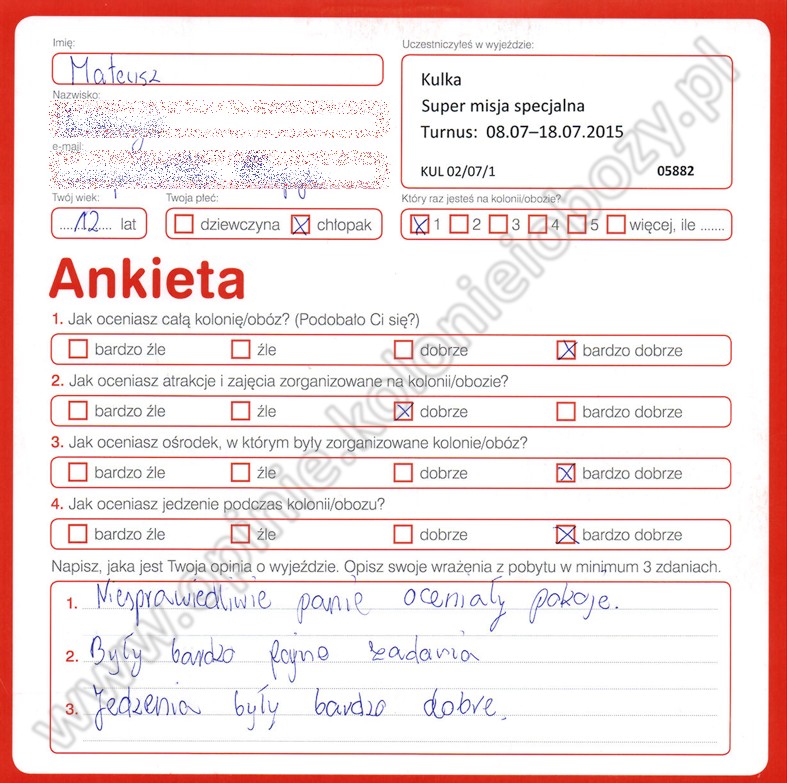 Imię:
Mateusz
Uczestniczyłeś w wyjeździe:
Kulka
Super misja specjalna
Turnus: 08.07–18.07.2015
KUL 02/07/1 05882
Nazwisko:
e-mail:
Twój wiek:
....12.... lat
Twoja płeć:
dziewczyna chłopak
Który raz jesteś na kolonii/obozie?
1 2 3 4 5 więcej, ile .......
Ankieta
1. Jak oceniasz całą kolonię/obóz? (Podobało Ci się?)
bardzo źle źle dobrze bardzo dobrze
2. Jak oceniasz atrakcje i zajęcia zorganizowane na kolonii/obozie?
bardzo źle źle dobrze bardzo dobrze
3. Jak oceniasz ośrodek, w którym były zorganizowane kolonie/obóz?
bardzo źle źle dobrze bardzo dobrze
4. Jak oceniasz jedzenie podczas kolonii/obozu?
bardzo źle źle dobrze bardzo dobrze
Napisz, jaka jest Twoja opinia o wyjeździe. Opisz swoje wrażenia z pobytu w minimum 3 zdaniach.
1. Niesprawiedliwie panie oceniały pokoje.
2. Były bardzo fajne zadania
3. Jedzenia były bardzo dobre.
www.opinie.kolonieiobozy.pl